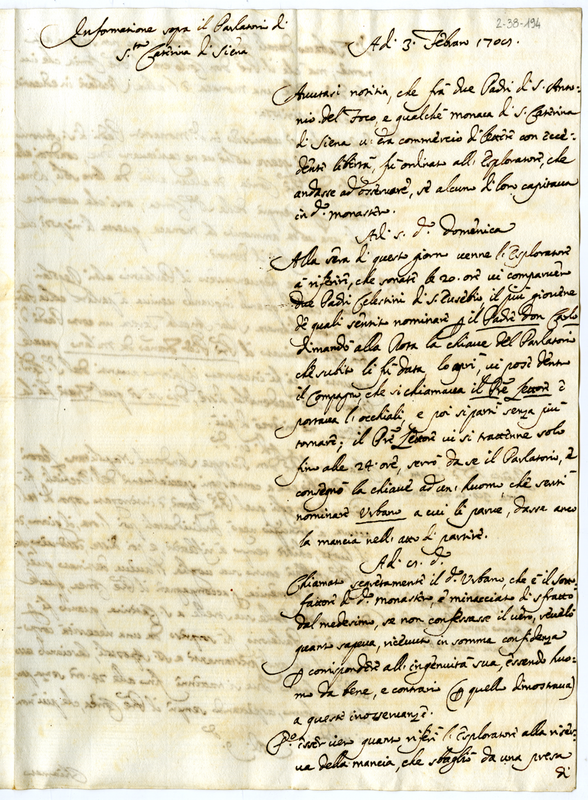 2-38-194
Informatione sopra il Parlatorio di
S.ta Caterina di Siena
Adi 3. Febraro 1705.
Avutasi notitia, che frà due Padri di S. Anto-
nio del foco, e qualche monaca di S. Caterina
di Siena vi era commercio di lettere con ecce-
dente libertà, fù ordinato all'Esploratore, che
andasse ad osservare, se alcuno di loro capitava
in d.o monastero.
Adi 5. d.o domenica
Alla sera di questo giorno venne l'Esploratore
à riferire, che sonate le 20. ore vi comparvero
due Padri Celestini di S. Eusebio, il più giovene
de quali sentito nominare p il Padre Don Carlo
dimandò alla Rota la chiave del Parlatorio
che subito li fù data, lo aprì, vi pose dentro
il Compagno, che si chiamava il Pre Lettore e
portava l'occhiali e poi si partì senza più
tornare; il Pre Lettore vi si trattenne solo
fino alle 24. ore, serrò da se il Parlatorio, e
consegnò la chiave ad un huomo che sentì
nominare Urbano a cui li parve, dasse anco
la mancia nell'atto di partire.
Adi d.o
Chiamato segretamente il d.o Urbano, che è il sotto
fattore di d.o monastero, e minacciato di sfratto
dal medesimo, se non confessasse il vero, svelò
quanto sapeva, ricevuto in somma confidenza
p corrispondere all'ingenuità sua, essendo huo-
mo da bene, e contrario (p quello dimostrava)
a queste inosservanze.
esser vero quanto riferì l'Esploratore alla riser-
va della mancia, che sbagliò da una presa
di